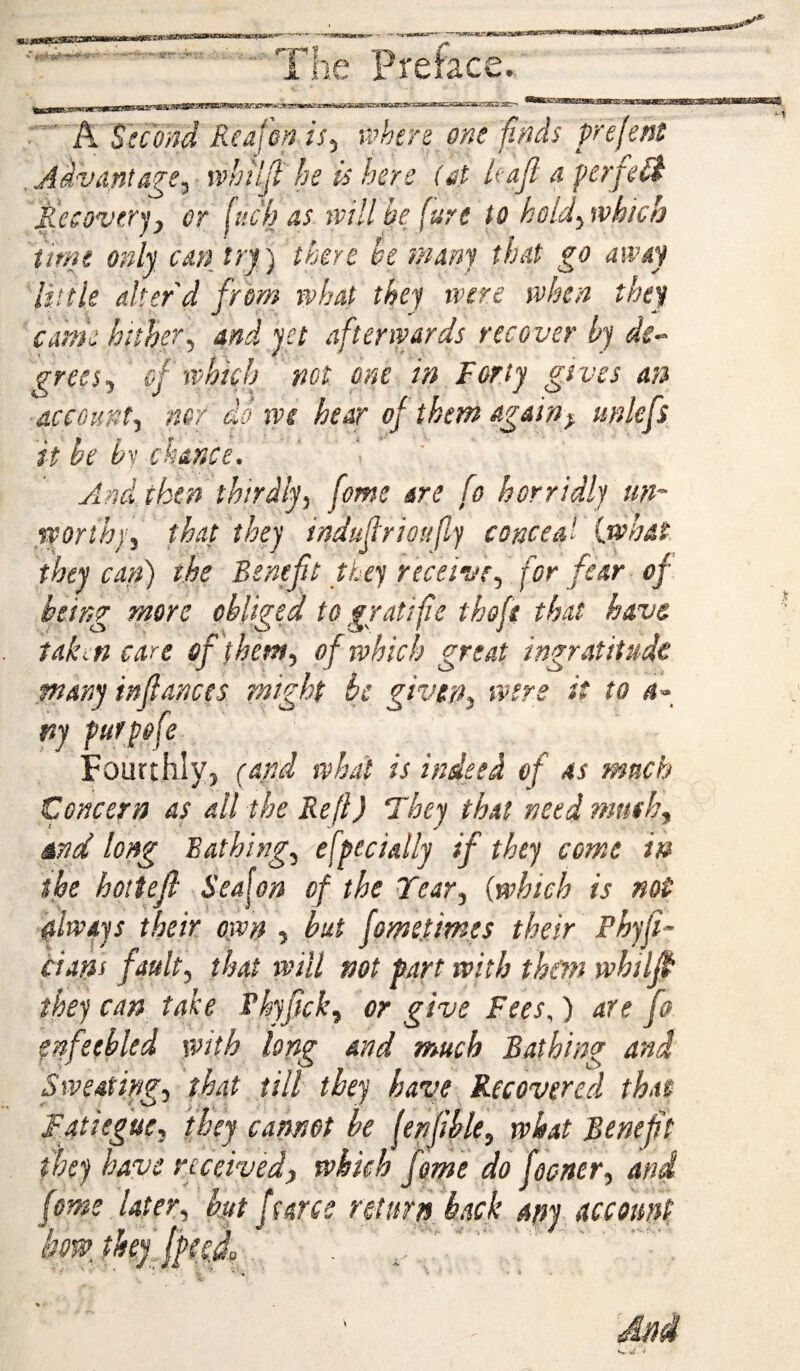 The Preface.
A Second Reaſon is, where one finds preſent
Advantage, whilſt he is here (at leaſt a perfect
Recovery, or ſuch as will be ſure to hold, which
time only can try) there be many that go away
little alter'd from what they were when they
came hither, and yet afterwards recover by de-
grees, of which not one in Forty gives an
account, nor do we hear of them again, unleſs
it be by chance.
And then thirdly, ſome are ſo horridly un-
worthy, that they induſtriouſly conceal (what
they can) the Benefit they receive, for fear of
being more obliged to gratifie thoſe that have
taken care of them, of which great ingratitude
many inſtances might be given, were it to a-
ny purpoſe
Fourthly, (and what is indeed of as much
Concern as all the Reſt) They that need much,
and long Bathing, eſpecially if they come in
the hotteſt Seaſon of the Year, (which is not
always their own , but ſometimes their Phyſi-
cians fault, that will not part with them whilſt
they can take Phyſick, or give Fees,) are ſo
enfeebled with long and much Bathing and
Sweating, that till they have Recovered that
Fatiegue, they cannot be ſenſible, what Benefit
they have received, which ſome do ſooner, and
ſome later, but ſcarce return back any account
how they ſpeed.
And